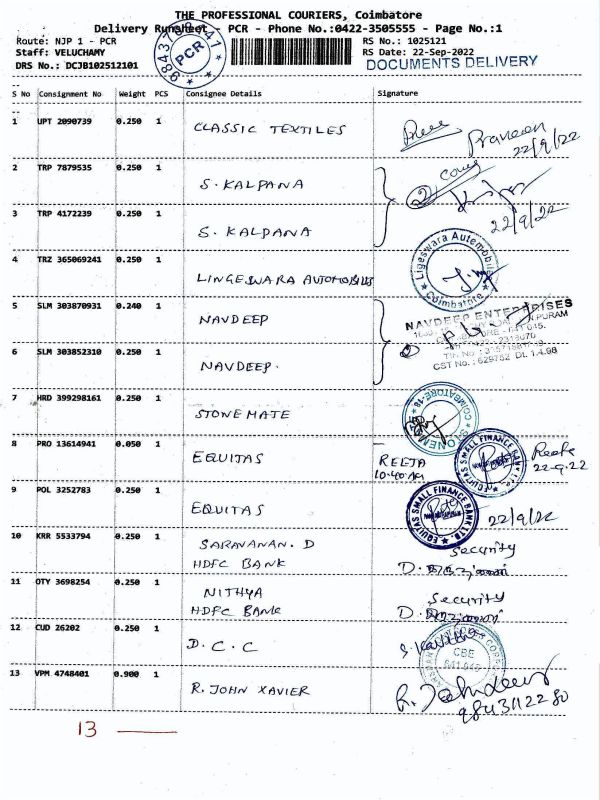 THE PROFESSIONAL COURIERS, Coimbatore
Delivery Runsheet - PCR - Phone No.:0422-3505555 - Page No.:1
Route: NJP 1 - PCR RS No.: 1025121
Staff: VELUCHAMY RS Date: 22-Sep-2022
DRS No.: DCJB102512101 DOCUMENTS DELIVERY
PCR
S No Consignment No Weight PCS Consignee Details Signature
1 UPT 2090739 0.250 1 CLASSIC TEXTILES Praveen
22/9/22
2 TRP 7879535 0.250 1 S. KALPANA
3 TRP 4172239 0.250 1 S. KALPANA 22/9/22
4 TRZ 365069241 0.250 1 LINGESWARA AUTOMOBILES Ligeswara Automobiles Coimbatore
5 SLM 303870931 0.240 1 NAVDEEP NAVDEEP ENTERPRISES
6 SLM 303852310 0.250 1 NAVDEEP. CST No.: 629752 Dt. 1.4.98
7 HRD 399298161 0.250 1 STONE MATE COIMBATORE-18
8 PRO 13614941 0.050 1 EQUITAS REETA EQUITAS SMALL FINANCE BANK LTD. Reeta
10.40 AM 22-9-22
9 POL 3252783 0.250 1 EQUITAS EQUITAS SMALL FINANCE BANK LTD. 22/9/22
10 KRR 5533794 0.250 1 SARAVANAN. D Security
HDFC BANK
11 OTY 3698254 0.250 1 NITHYA Security
HDFC BANK
12 CUD 26202 0.250 1 D.C.C CBE
641 045
13 VPM 4748401 0.900 1 R. JOHN XAVIER
9843112280
13